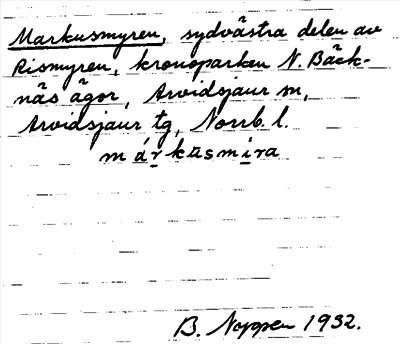 Markusmyren, sydvästra delen av
Rismyren, kronoparken N. Bäck-
näs ägor, Arvidsjaur sn,
Arvidsjaur tg, Norrb. l.
márkusmira
B. Noppen 1932.